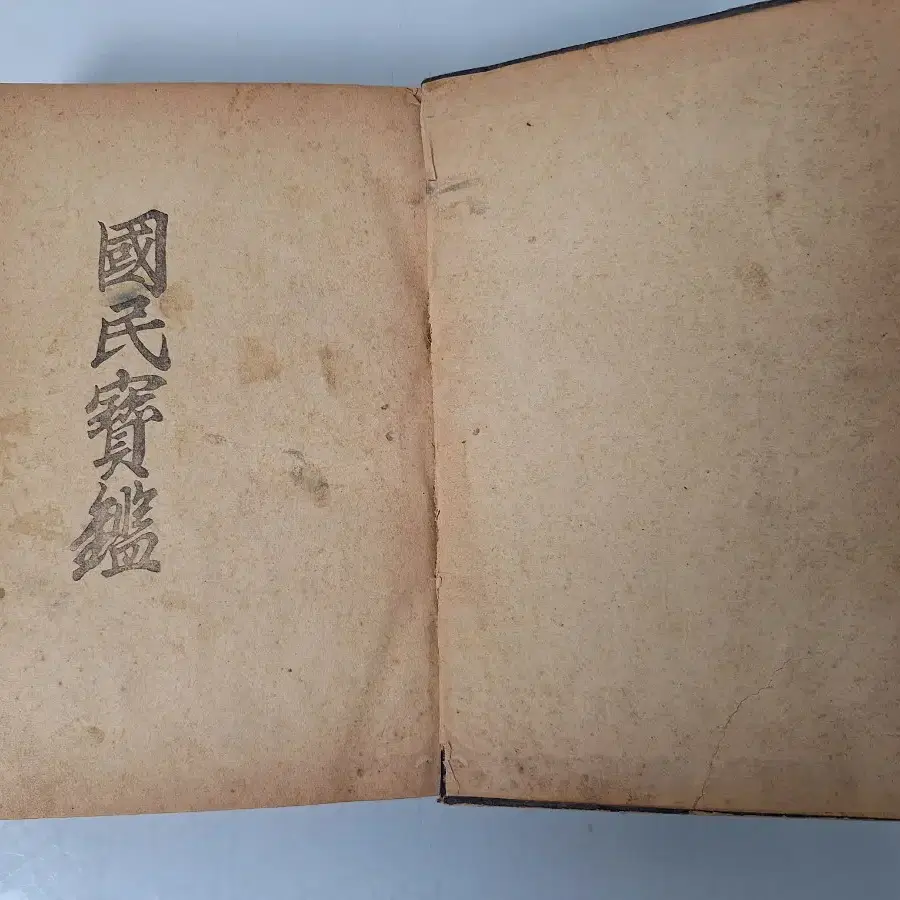 國民寶鑑